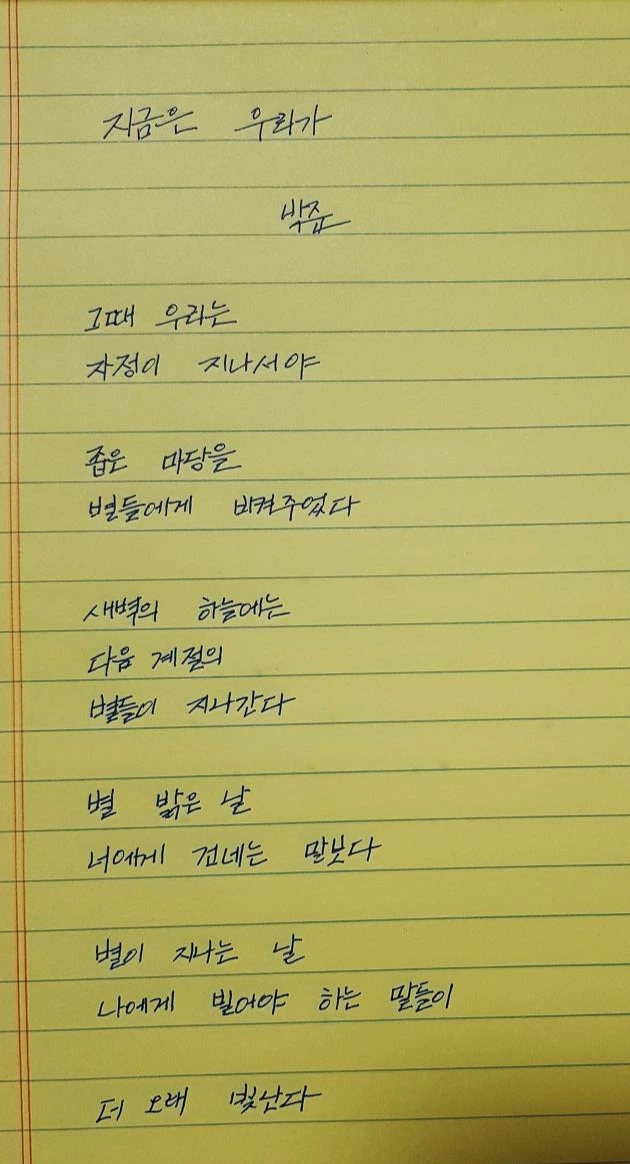 지금은 우리가
박준
그때 우리는
자정이 지나서야
좁은 마당을
별들에게 비켜주었다
새벽의 하늘에는
다음 계절의
별들이 지나간다
별 밝은 날
너에게 건네는 말보다
별이 지나는 날
나에게 빌어야 하는 말들이
더 오래 빛난다